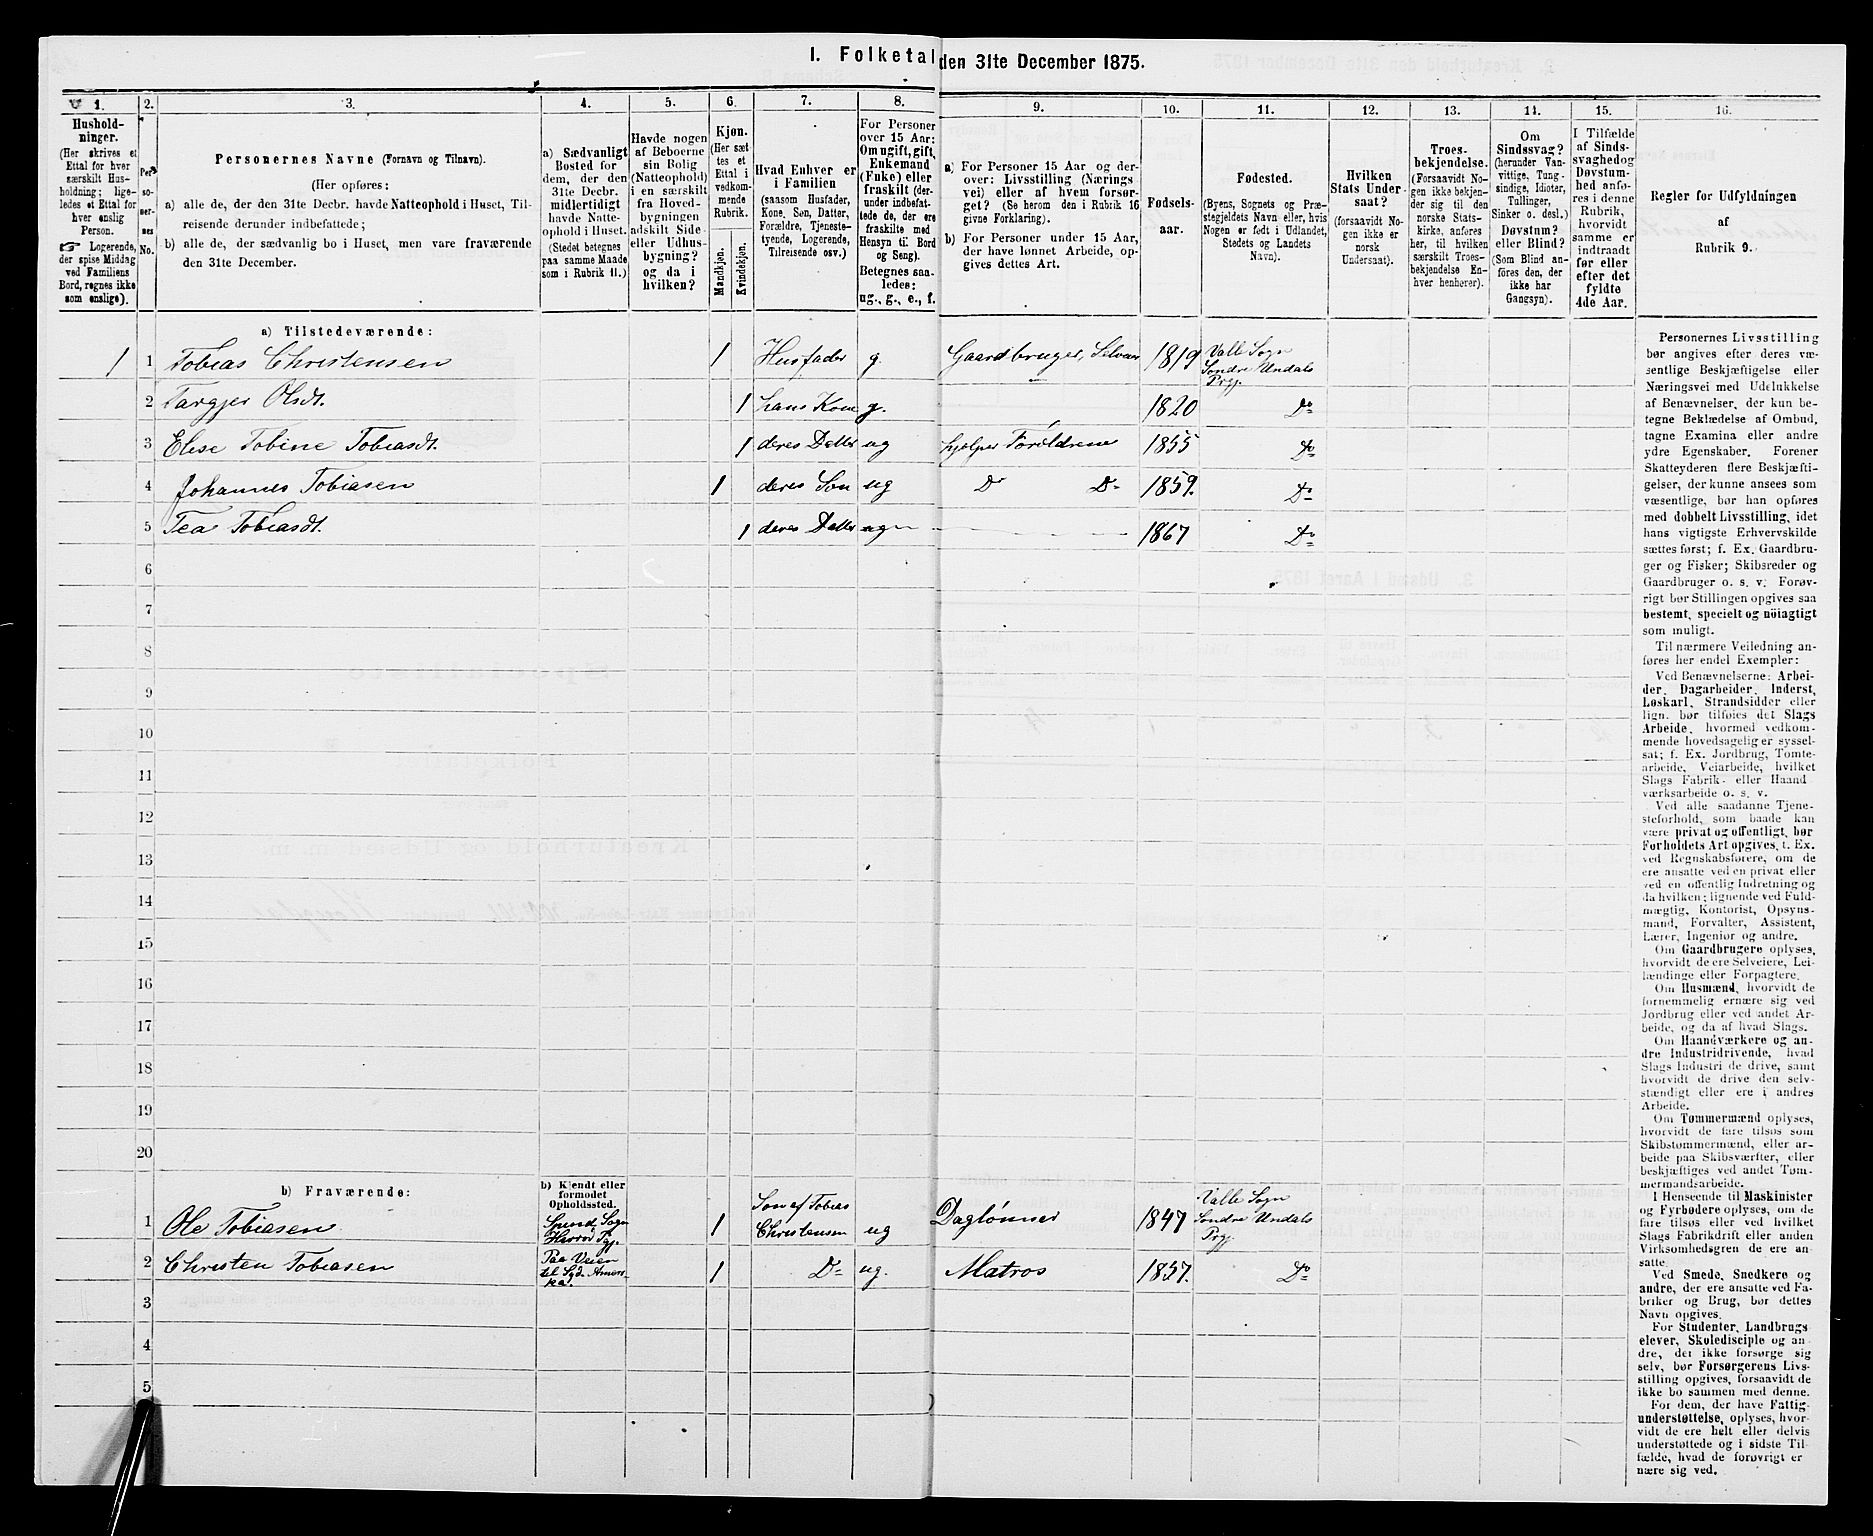 I. Folketal den 31te December 1875.
1. 2. 3. 4. 5. 6. 7. 8. 9. 10. 11. 12. 13. 14. 15. 16.
Hushold-
ninger.
(Her skrives et
Ettal for hver
særskilt Hus-
holdning; lige-
ledes et Ettal
for hver
enslig
Person.
☞ Logerende,
der spise Middag
ved Familiens
Bord, regnes ikke
som enslige).
Per-
so-
ner-
nes
No.
Personernes Navne (Fornavn og Tilnavn).
(Her opføres:
a) alle de, der den 31te Decbr. havde Natteophold i Huset, Til-
reisende derunder indbefattede;
b) alle de, der sædvanlig bo i Huset, men vare fraværende
den 31te December.)
a) Sædvanligt
Bosted for
dem, der den
31te Decbr.
midlertidigt
havde Natte-
ophold i Huset.
(Stedet betegnes
paa samme Maade
som i Rubrik 11.)
Havde nogen
af Beboerne
sin Bolig
(Natteophold)
i en særskilt
fra Hoved-
bygningen
adskilt Side-
eller Udhus-
bygning?
og da i
hvilken?
Kjøn.
(Her sæt-
tes et
Ettal i
vedkom-
mende
Rubrik.
Mandkjøn.
Kvindekjøn.
Hvad Enhver er
i Familien
(saasom Husfader,
Kone, Søn, Datter,
Forældre, Tjeneste-
tyende, Logerende,
Tilreisende osv.)
For Personer
over 15 Aar:
Om ugift, gift,
Enkemand
(Fuke) eller
fraskilt (der-
under indbefat-
tede de, der ere
fraskilte med
Hensyn til Bord
og Seng).
Betegnes saa-
ledes:
ug., g., e., f.
a) For Personer 15 Aar og der-
over: Livsstilling (Nærings
vei) eller af hvem forsør-
get? (Se herom den i Rubrik 16
givne Forklaring).
b) For Personer under 15 Aar,
der have lønnet Arbeide, op-
gives dettes Art.
Fødsels-
aar.
Fødested.
(Byens, Sognets og Præ-
stegjeldets Navn eller, hvis
Nogen er født i Udlandet,
Stedets og Landets
Navn).
Hvilken
Stats Under-
saat?
(forsaavidt No-
gen ikke er
norsk
Undersaat).
Troes-
bekjendelse.
(Forsaavidt No-
gen ikke bekjen-
der sig til den
norske Stats-
kirke, anføres
her, til hvilken
særskilt Troes-
bekjendelse En-
hver henhører).
Om
Sindssvag?
(herunder Van-
vittige, Tung-
sindige, Idioter,
Tullinger,
Sinker o. desl.)
Døvstum?
eller Blind?
(Som Blind an-
føres den, der
ikke har
Gangsyn).
I Tilfælde
af Sinds-
svaghed og
Døvstum-
hed anfø-
res i denne
Rubrik,
hvorvidt
samme er
indtraadt
før eller
efter det
fyldte
4de Aar.
Regler for Udfyldningen
af
Rubrik 9.
a) Tilstedeværende:
1 1 Tobias Christensen 1 Husfader g. Gaardbruger, Selveier 1819 Valle Sogn
Søndre Undals
Prgj.
2 Targjer Olsdt. 1 hans Kone g. 1820 Do
3 Elise Tobine Tobiasdt. 1 deres Datter ug hjelper Forældrene 1855 Do
4 Johannes Tobiasen 1 deres Søn ug Do Do 1859. Do
5 Tea Tobiasdt. 1 deres Datter ug 1867 Do
6
7
8
9
10
11
12
13
14
15
16
17
18
19
20
b) Fraværende:
b) Kjendt eller
formodet
Opholdssted.
1 Ole Tobiasen Sogn 1 Søn af Tobias
Christensen ug Daglønner 1847 Valle Sogn
Søndre Undals
Prgj.
2 Christen Tobiasen Paa Veien
til Syd. Ameri-
ka. 1 Do ug. Matros 1857. Do
3
4
5
Personernes Livsstilling
bør angives efter deres væ-
sentlige Beskjæftigelse eller
Næringsvei med Udelukkelse
af Benævnelser, der kun be-
tegne Beklædelse af Ombud,
tagne Examina eller andre
ydre Egenskaber. Forener
Skatteyderen flere Beskjæfti-
gelser, der kunne ansees som
væsentlige, bør han opføres
med dobbelt Livsstilling, idet
hans vigtigste Erhvervskilde
sættes først; f. Ex. Gaardbru-
ger og Fisker; Skibsreder og
Gaardbruger o. s. v. Forøv-
rigt bør Stillingen opgives saa
bestemt, specielt og nöiagtigt
som muligt.
Til nærmere Veiledning an-
føres her endel Exempler:
Ved Benævnelserne: Arbei-
der, Dagarbeider, Inderst,
Løskarl, Strandsidder eller
lign. bør tilføies det Slags
Arbeide, hvormed vedkom-
mende hovedsagelig er syssel-
sat; f. Ex. Jordbrug, Tomte-
arbeide, Veiarbeide, hvilket
Slags Fabrik- eller Haand
værksarbeide o. s. v.
Ved alle saadanne Tjene-
steforhold, som baade kan
være privat og offentligt, bør
Forholdets Art opgives, t. Ex.
ved Regnskabsførere, om de
ere ansatte ved en privat eller
ved en offentlig Indretning og
da hvilken; lignende ved Fuld-
mægtig, Kontorist, Opsyns-
mand, Forvalter, Assistent,
Lærer, Ingeniør og andre.
Om Gaardbrugere oplyses,
hvorvidt de ere Selveiere, Lei-
lændinge eller Forpagtere.
Om Husmænd, hvorvidt de
fornemmelig ernære sig ved
Jordbrug eller ved andet Ar-
beide, og da af hvad Slags.
Om Haandværkere og an-
dre Industridrivende, hvad
Slags Industri de drive, samt
hvorvidt de drive den selv-
stændigt eller ere i andres
Arbeide.
Om Tømmermænd oplyses,
hvorvidt de fare tilsøs som
Skibstømmermænd, eller ar-
beide paa Skibsværfter, eller
beskjæftiges ved andet Tøm-
mermandsarbeide.
I Henseende til Maskinister
og Fyrbødere oplyses, om de
fare tilsøs eller ved hvilket
Slags Fabrikdrift eller anden
Virksomhedsgren de ere an-
satte.
Ved Smede, Snedkere og
andre, der ere ansatte ved Fa-
briker og Brug, bør dettes
Navn opgives.
For Studenter, Landbrugs
elever, Skoledisciple og an-
dre, der ikke forsørge sig
selv, bør Forsørgerens Livs-
stilling opgives, forsaavidt de
ikke bo sammen med denne.
For dem, der have Fattig-
understøttelse, oplyses, hvor-
vidt de ere helt eller delvis
understøttede og i sidste Til-
fælde, hvad de forøvrigt er
nære sig ved.